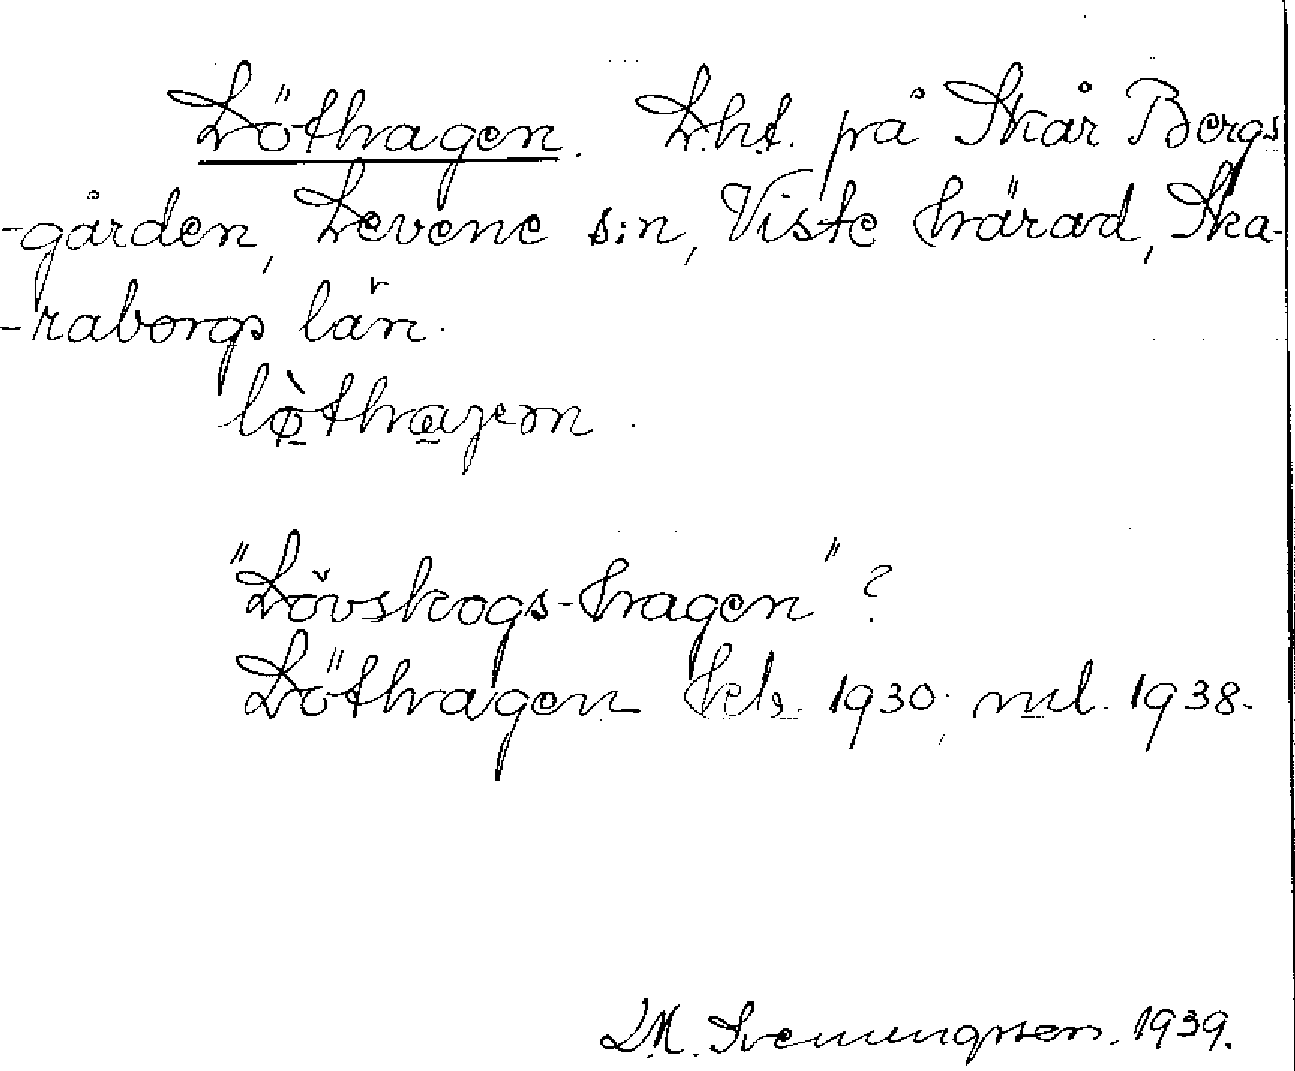 Löthagen. Lht. på Skår Bergs
-gården, Levene s:n, Viste härad, Ska-
-raborgs län.
lø̀thagen.
"Lövskogs-hagen"?
Löthagen Ek. 1930; ml. 1938.
L.M. Svenungsson. 1939.